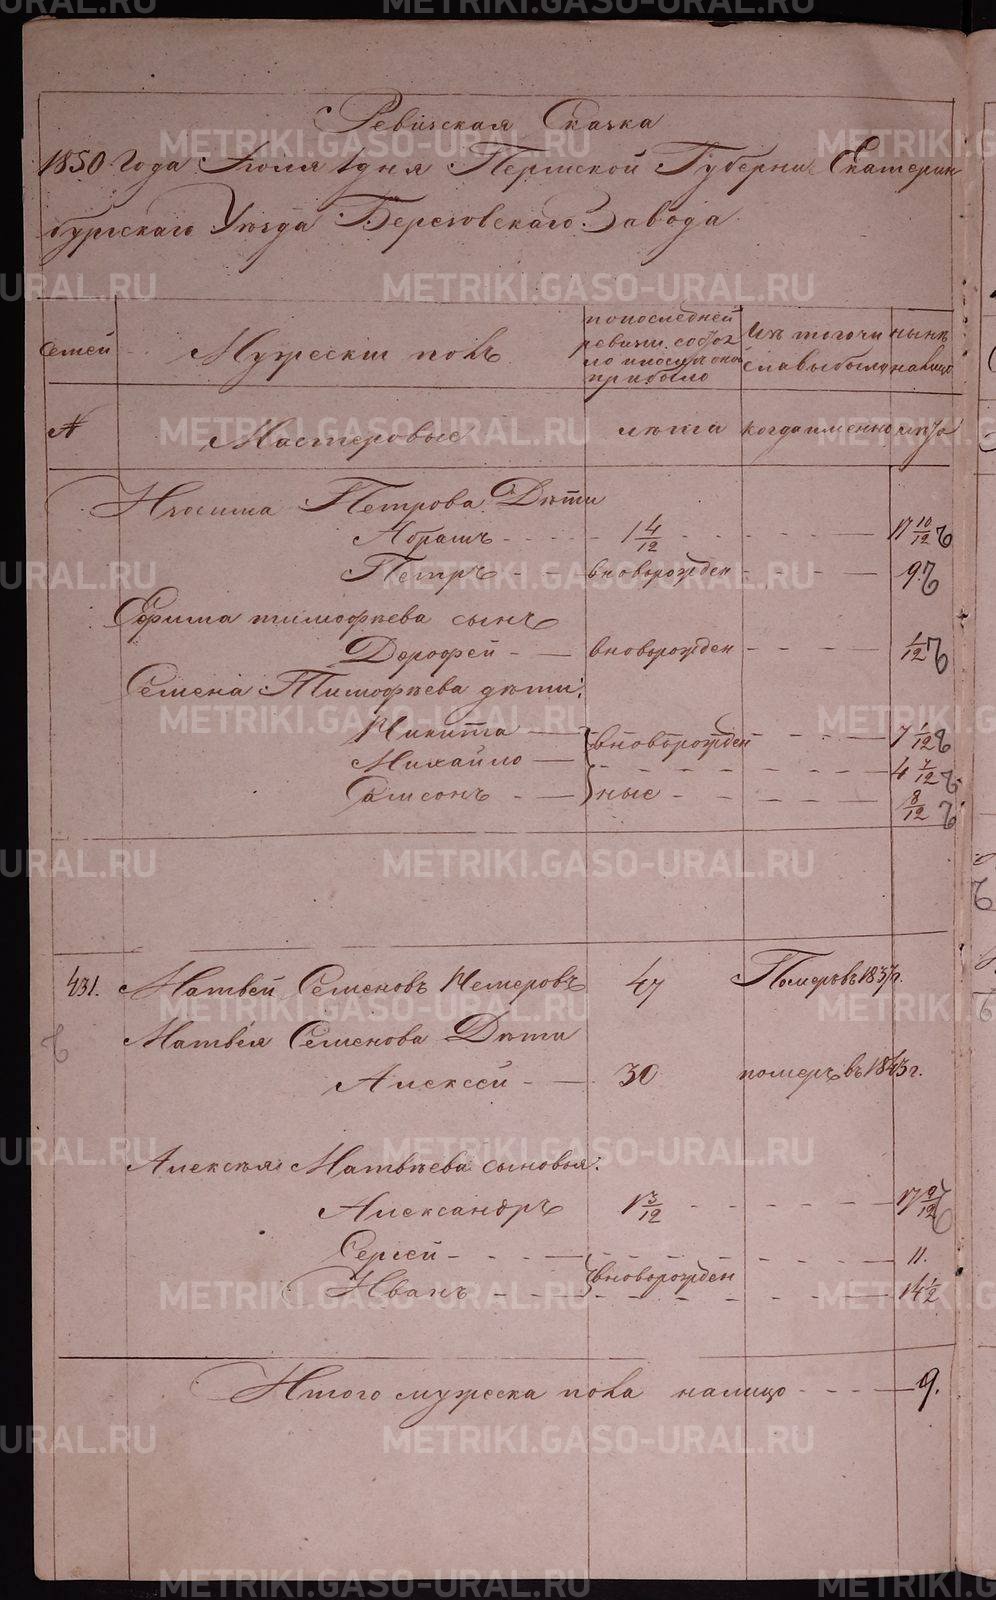 Ревизская Сказка
1850 года Июля 1 дня Пермской Губернии Екатерин
бургскаго Уезда Березовскаго Завода
семей
Мужескш полъ
по последней
ревизии состоя
ло и после оной
прибыло
Изъ того чи
сла выбыло
ныне
на лицо
№
Мастеровые
лѣта
когда именно
лета
Изосима Петрова Дѣти
Абрамъ 1 4/12 17 10/12
Петръ вноворожден 9
Ефима Тимофѣева сынъ
Дорофей вноворожден 1/12
Семена Тимофѣева дѣти:
Никита вноворожден 7 1/12
Михайло 4 7/12
Самсонъ ные 8/12
431. Матвей Семеновъ Чемеровъ 47 Померъ въ 1837 г.
Матвея Семенова Дѣти
Алексей 30 померъ въ 1843 г.
Алексѣя Матвѣева сыновья:
Александръ 1 3/12 17 9/12
Сергей 11.
Иванъ вноворожден 14 1/2
Итого мужеска пола налицо 9.
METRIKI.GASO-URAL.RU